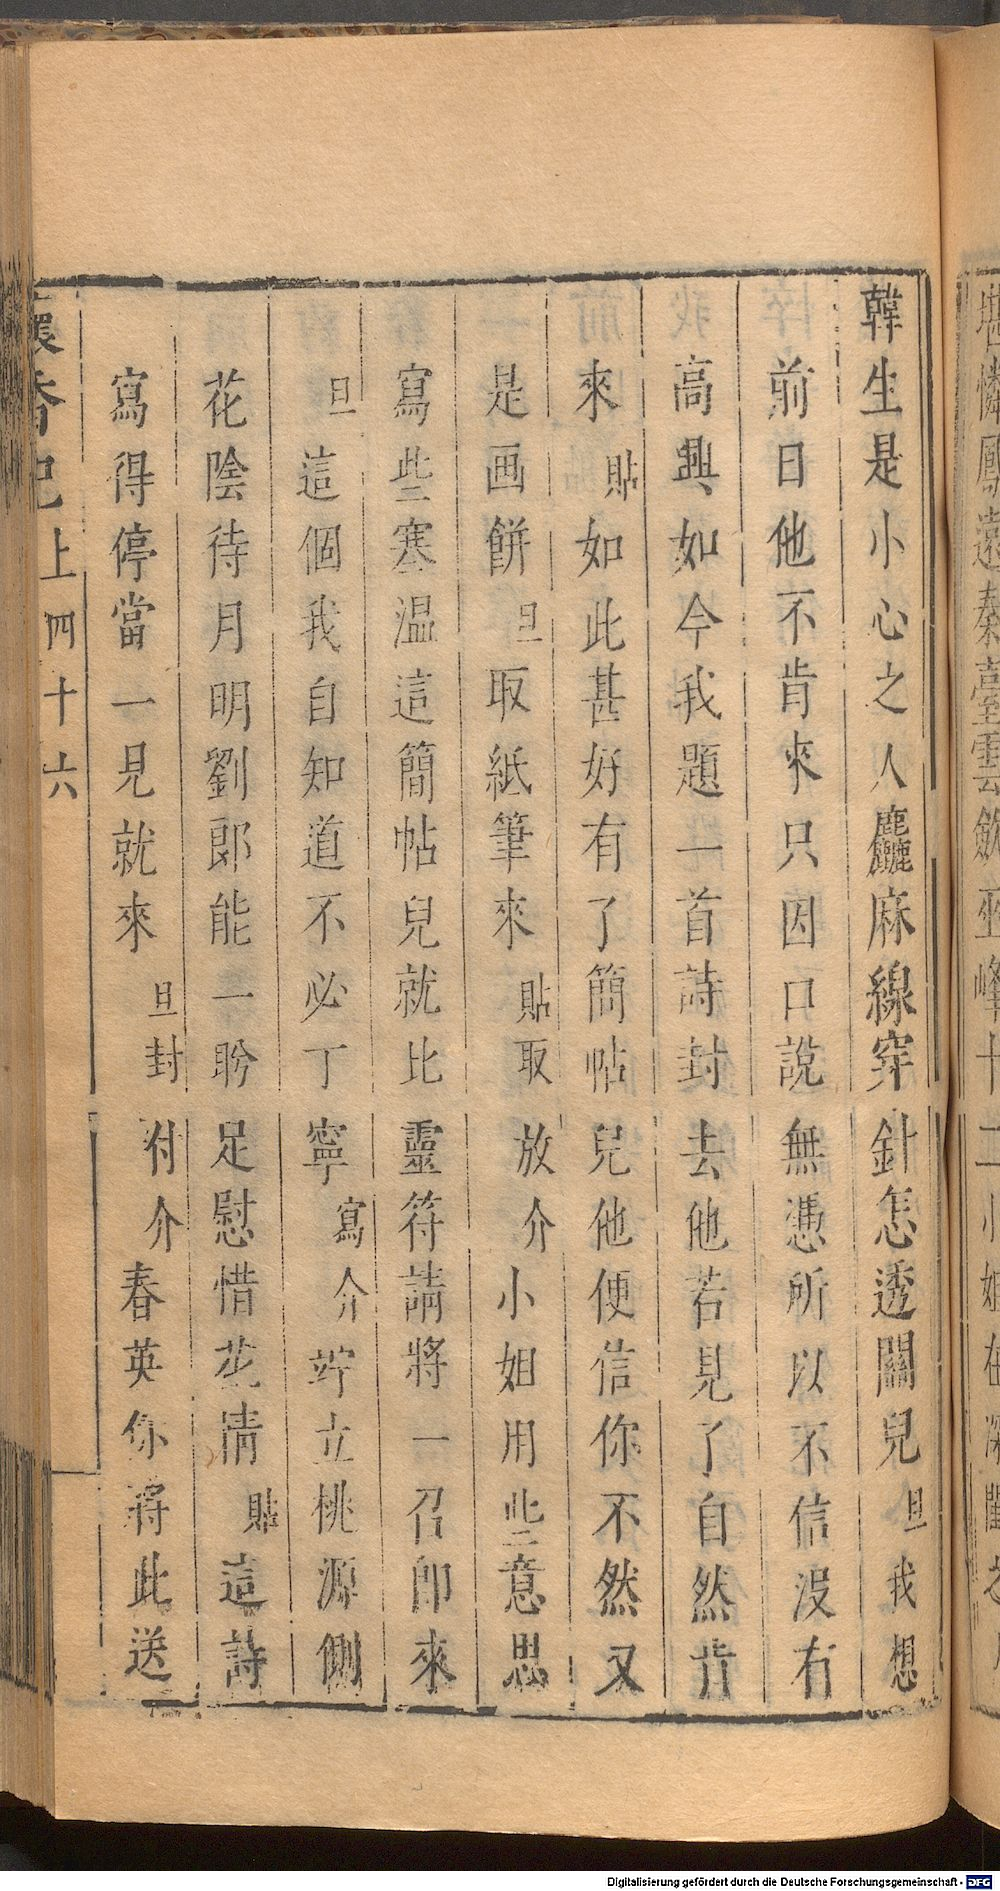 韓生是小心之人麤麻線穿針怎透關兒旦我想
前日他不肯來只因口說無憑所以不信沒有
高興如今我題一首詩封去他若見了自然肯
來貼如此甚好有了簡帖兒他便信你不然又
是画餅旦取紙筆來貼取放介小姐用些意思
寫些寒温這簡帖兒就比靈符請將一召即來
旦這個我自知道不必丁寧寫介竚立桃源側
花陰待月明劉郎能一盻足慰惜花情貼這詩
寫得停當一見就來旦封付介春英你將此送
懷香記上四十六
Digitalisierung gefördert durch die Deutsche Forschungsgemeinschaft - DFG